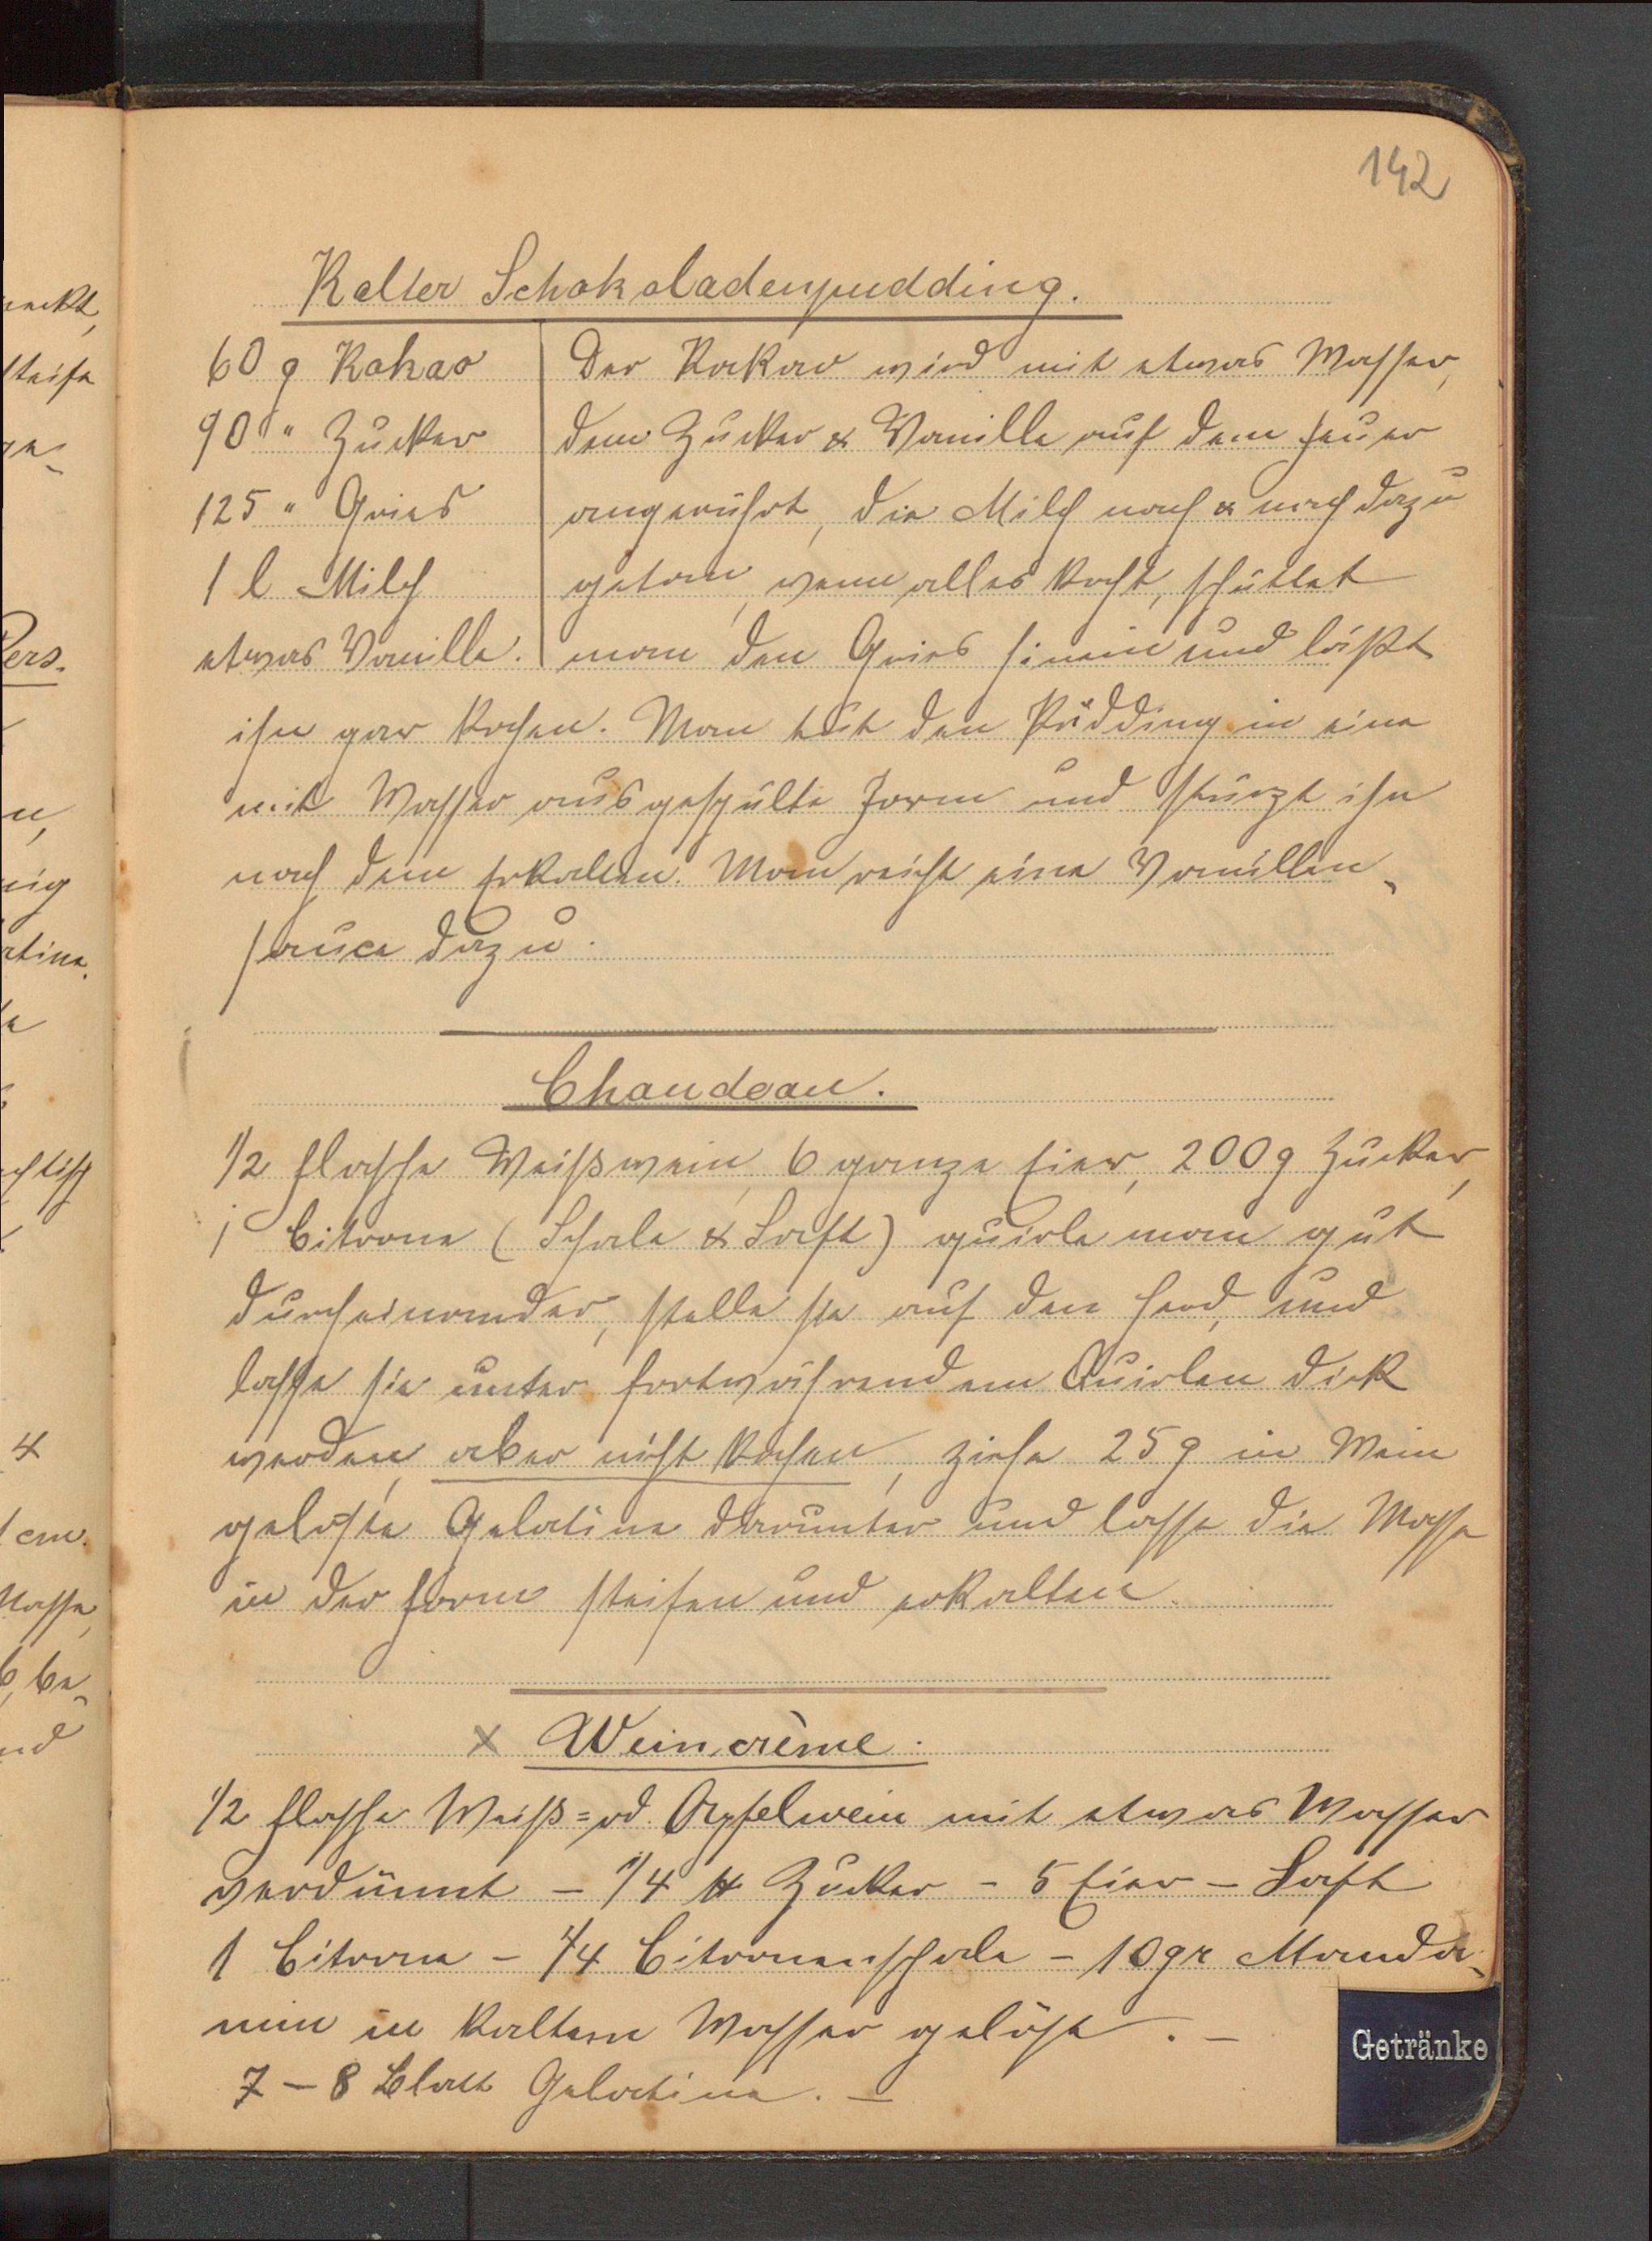 142
Kalter Schokoladenpudding.
60 g Kakao
90 " Zucker
125 " Gries
1 l Milch
etwas Vanille.
Der Kakao wird mit etwas Wasser,
dem Zucker & Vanille auf dem Feuer
angerührt, die Milch nach & nach dazu
getan, wenn alles kocht, schüttet
man den Gries hinein und läßt
ihn gar kochen. Man tut den Pudding in eine
mit Wasser ausgespülte Form und stürzt ihn
nach dem Erkalten. Man reicht eine Vanillen-
sauce dazu.
Chaudeau.
1/2 Flasche Weißwein, 6 ganze Eier, 200 g Zucker,
1 Citrone (Schale & Saft) quirle man gut
durcheinander, stelle sie auf den Herd, und
lasse sie unter fortwährendem Quirlen dick
werden, aber nicht kochen, ziehe 25 g in Wein
gelöste Gelatine darunter und lasse die Masse
in der Form steifen und erkalten.
x Weincrème.
1/2 Flasche Weiß= od. Apfelwein mit etwas Wasser
verdünnt – 1/4 ℔ Zucker – 5 Eier – Saft
1 Citrone – 1/4 Citronenschale – 10 gr Monda-
min in kaltem Wasser gelöst. –
7 – 8 Blatt Gelatine. –
Getränke